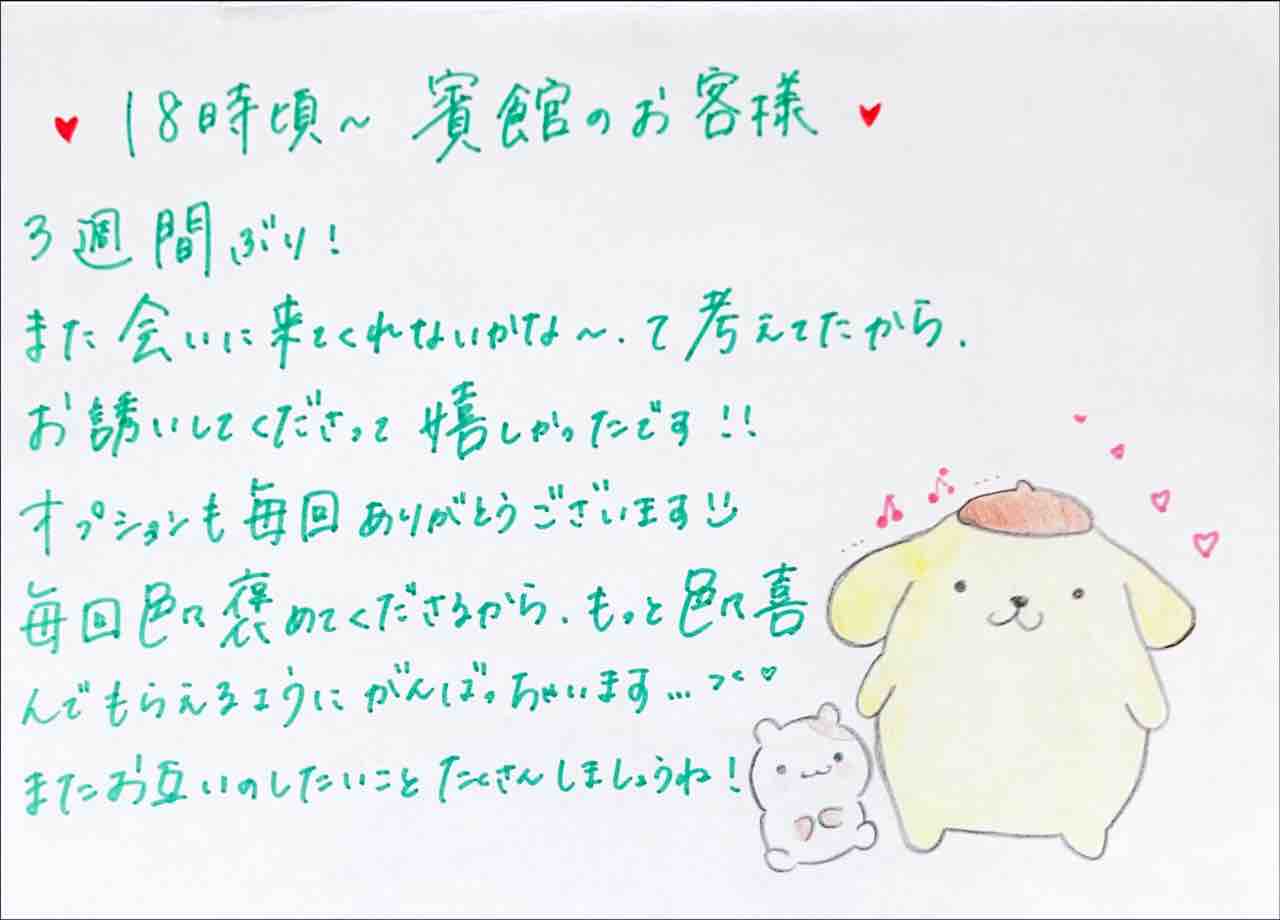 ♥ 18時頃〜 賓館のお客様 ♥
3週間ぶり!
また会いに来てくれないかな〜.て考えてたから.
お誘いしてくださって嬉しかったです!!
オプションも毎回ありがとうございます
毎回色々褒めてくださるから.もっと色々喜
んでもらえるようにがんばっちゃいます...♡
またお互いのしたいことたくさんしましょうね!